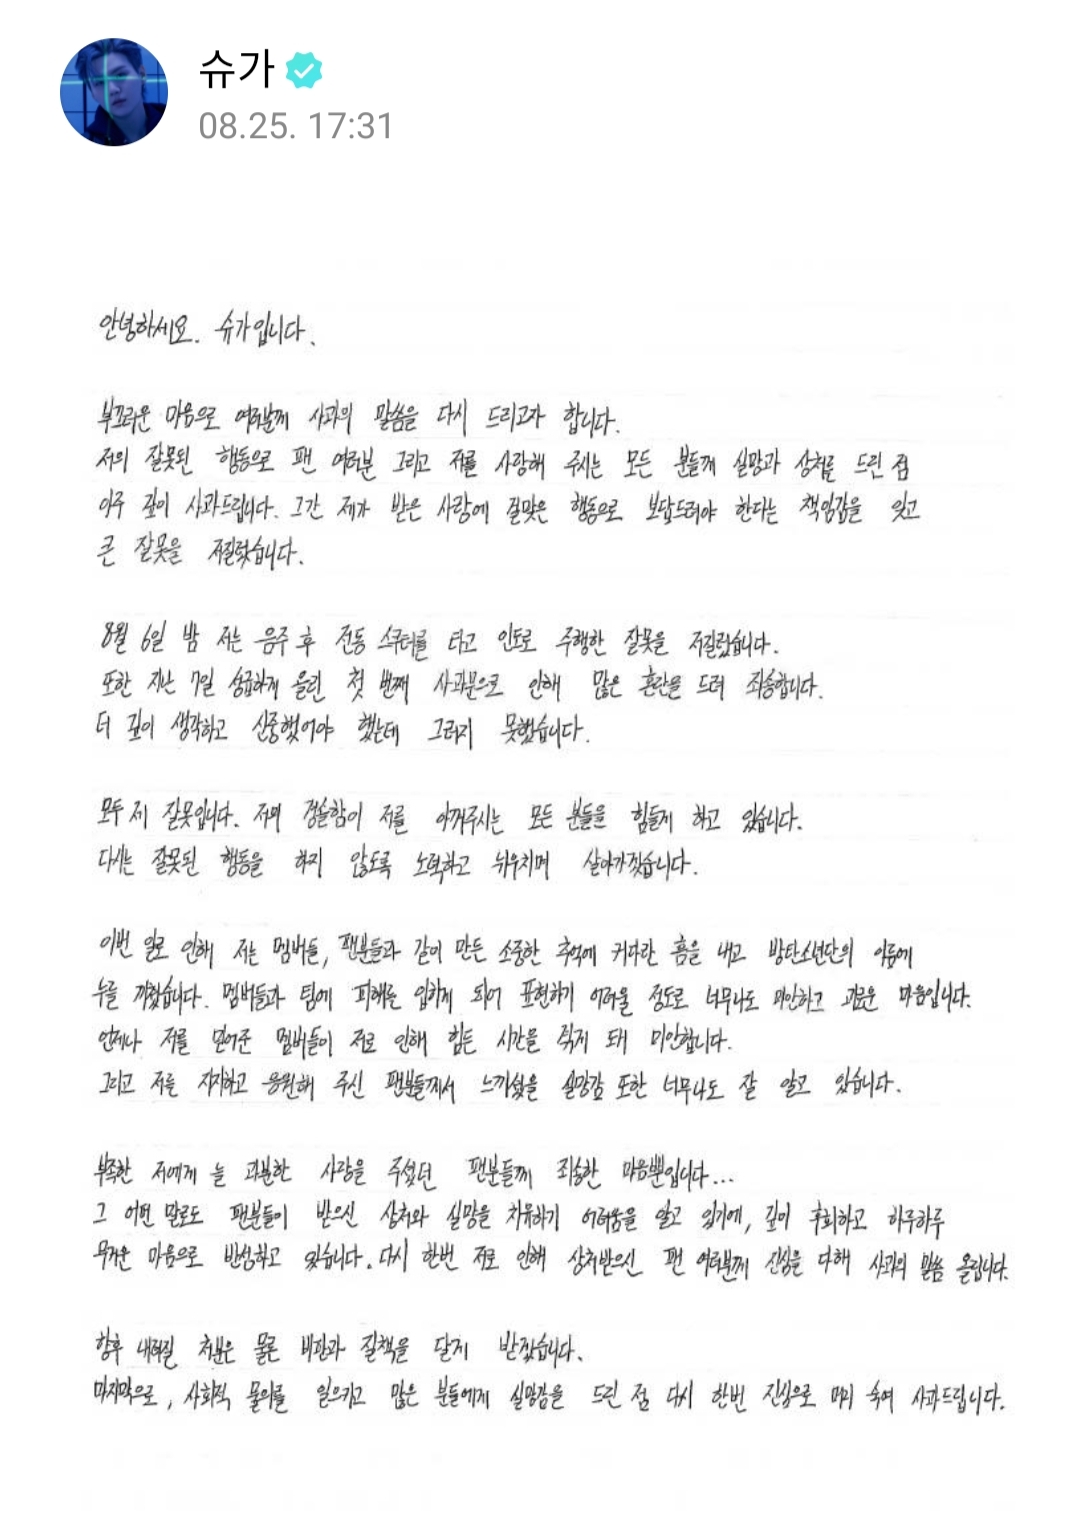 슈가
08.25. 17:31
안녕하세요. 슈가입니다.
부끄러운 마음으로 여러분께 사과의 말씀을 다시 드리고자 합니다.
저의 잘못된 행동으로 팬 여러분 그리고 저를 사랑해 주시는 모든 분들께 실망과 상처를 드린 점
아주 깊이 사과드립니다. 그간 제가 받은 사랑에 걸맞은 행동으로 보답드려야 한다는 책임감을 잊고
큰 잘못을 저질렀습니다.
8월 6일 밤 저는 음주 후 전동 스쿠터를 타고 인도로 주행한 잘못을 저질렀습니다.
또한 지난 7일 성급하게 올린 첫 번째 사과문으로 인해 많은 혼란을 드려 죄송합니다.
더 깊이 생각하고 신중했었어야 했는데 그러지 못했습니다.
모두 제 잘못입니다. 저의 경솔함이 저를 아껴주시는 모든 분들을 힘들게 하고 있습니다.
다시는 잘못된 행동을 하지 않도록 노력하고 뉘우치며 살아가겠습니다.
이번 일로 인해 저는 멤버들, 팬분들과 같이 만든 소중한 추억에 커다란 흠을 내고 방탄소년단의 이름에
누를 끼쳤습니다. 멤버들과 팀에 피해를 입히게 되어 표현하기 어려울 정도로 너무나도 미안하고 괴로운 마음입니다.
언제나 저를 믿어준 멤버들이 저로 인해 힘든 시간을 겪게 돼 미안합니다.
그리고 저를 지지하고 응원해 주신 팬분들께서 느끼셨을 실망감 또한 너무나도 잘 알고 있습니다.
부족한 저에게 늘 과분한 사랑을 주셨던 팬분들께 죄송한 마음뿐입니다...
그 어떤 말로도 팬분들이 받으신 상처와 실망을 치유하기 어려움을 알고 있기에, 깊이 후회하고 하루하루
무거운 마음으로 반성하고 있습니다. 다시 한번 저로 인해 상처받으신 팬 여러분께 진심을 다해 사과의 말씀 올립니다.
향후 내려질 처분은 물론 비판과 질책을 달게 받겠습니다.
마지막으로, 사회적 물의를 일으키고 많은 분들에게 실망감을 드린 점 다시 한번 진심으로 머리 숙여 사과드립니다.